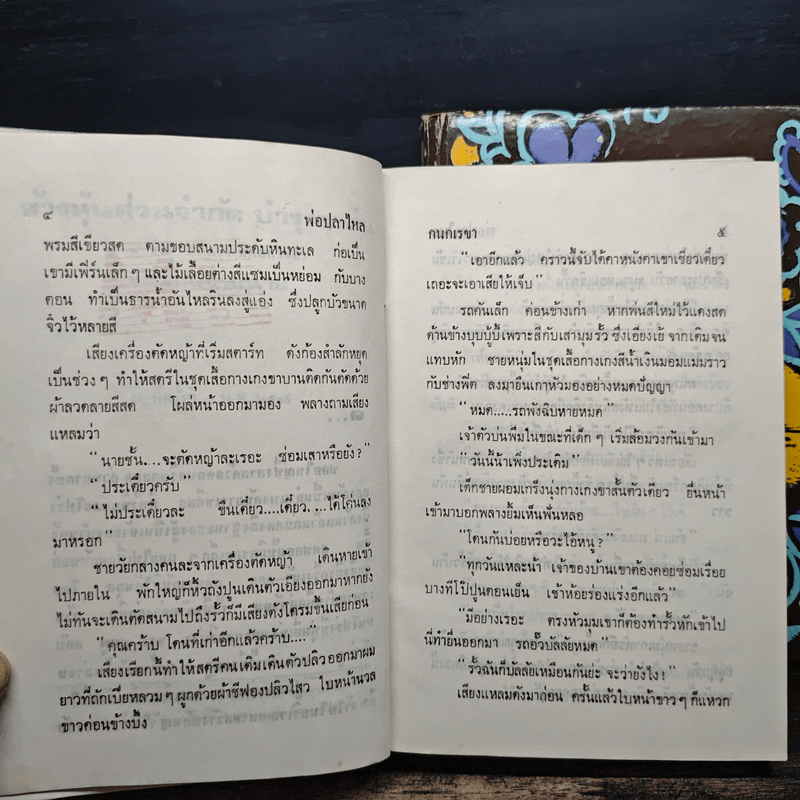 ๔ พ่อปลาไหล
พรมสีเขียวสด ตามขอบสนามประดับหินทะเล ก่อเป็น
เขามีเฟิร์นเล็ก ๆ และไม้เลื้อยต่างสีแซมเป็นหย่อม กับบาง
ตอน ทำเป็นธารน้ำอันไหลรินลงสู่แอ่ง ซึ่งปลูกบัวขนาด
จิ๋วไว้หลายสี
เสียงเครื่องตัดหญ้าที่เริ่มสตาร์ท ดังก้องสำลักหยุด
เป็นช่วง ๆ ทำให้สตรีในชุดเสื้อกางเกงขาบานติดกันตัดด้วย
ผ้าลวดลายสีสด โผล่หน้าออกมามอง พลางถามเสียง
แหลมว่า
“นายชั้น....จะตัดหญ้าละเรอะ ซ่อมเสาหรือยัง?”
“ประเดี๋ยวครับ”
“ไม่ประเดี๋ยวละ ขืนเดี๋ยว....เดี๋ยว. ...ได้โค่นลง
มาหรอก”
ชายวัยกลางคนละจากเครื่องตัดหญ้า เดินหายเข้า
ไปภายใน พักใหญ่ก็หิ้วถังปูนเดินตัวเอียงออกมาหากยัง
ไม่ทันจะเดินตัดสนามไปถึงรั้วก็มีเสียงดังโครมขึ้นเสียก่อน
“คุณคร้าบ โดนที่เก่าอีกแล้วคร้าบ....”
เสียงเรียกนี้ทำให้สตรีคนเดิมเดินตัวปลิวออกมาผม
ยาวที่ถักเปียหลวม ๆ ผูกด้วยผ้าชีฟองปลิวไสว ใบหน้านวล
ขาวค่อนข้างบึ้ง
กนกเรขา ๕
“เอาอีกแล้ว คราวนี้จับได้คาหนังคาเขาเชียวเดี๋ยว
เถอะจะเอาเสียให้เจ็บ”
รถคันเล็ก ค่อนข้างเก่า หากพ่นสีใหม่ไว้แดงสด
ด้านข้างบุบบู้บี้เพราะสีกับเสามุมรั้ว ซึ่งเอียงเย้ จากเดิมจน
แทบหัก ชายหนุ่มในชุดเสื้อกางเกงสีน้ำเงินมอมแมมราว
กับช่างฟิต ลงมายืนเกาหัวมองอย่างหมดปัญญา
“หมด.....รถพังฉิบหายหมด”
เจ้าตัวบ่นพึมในขณะที่เด็ก ๆ เริ่มล้อมวงกันเข้ามา
“วันนี้น้าเพิ่งประเดิม”
เด็กชายผอมเกร็งนุ่งกางเกงขาสั้นตัวเดียว ยื่นหน้า
เข้ามาบอกพลางยิ้มเห็นฟันหลอ
“โดนกันบ่อยหรือวะไอ้หนู ?”
“ทุกวันแหละน้า เจ้าของบ้านเขาต้องคอยซ่อมเรื่อย
บางทีโป๊ปูนตอนเย็น เช้าห้อยร่องแร่งอีกแล้ว”
“มีอย่างเรอะ ตรงหัวมุมเขาก็ต้องทำรั้วหักเข้าไป
นี่ทำยื่นออกมา รถอั๊วบัลลัยหมด”
“รั้วฉันก็บัลลัยเหมือนกันย่ะ จะว่ายังไง !”
เสียงแหลมดังมาก่อน ครั้นแล้วใบหน้าขาว ๆ ก็แหวก